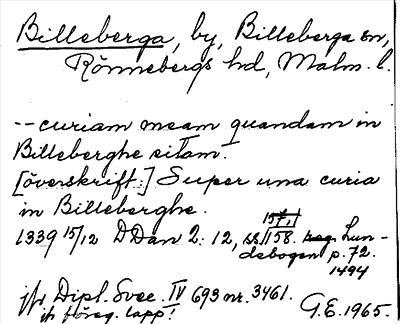 Billeberga, by, Billeberga sn,
Rönnebergs hd, Malm. l.
-- curiam meam quandam in
Billeberghe sitam.
[överskrift:] Super una curia
in Billeberghe.
1339 15/12 DDan 2: 12, 158. Lun-
debogen p. 72.
1494
jfr Dipl. Svec. IV 693 nr. 3461.
jfr föreg. lapp!
G.E. 1965.